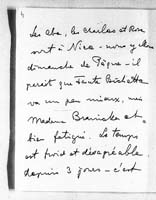 4
Les abe, les Charles et Rose
sont à Nice - nous y
dimanche de Pâques - il
paraît que Tante
va un peu mieux, mais
Madame Branicka est
bien fatiguée. Le temps
est froid et désagréable
depuis 3 jours - c'est